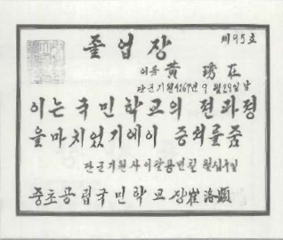 제95호
졸업장
이름 黃 琇在
단군기원4267년 9월 29일 남
이는 국민학교의 전과정
을 마치었기에 이 증서를 줌
단군기원사이칠년칠월십구일
중초공립국민학교장 崔